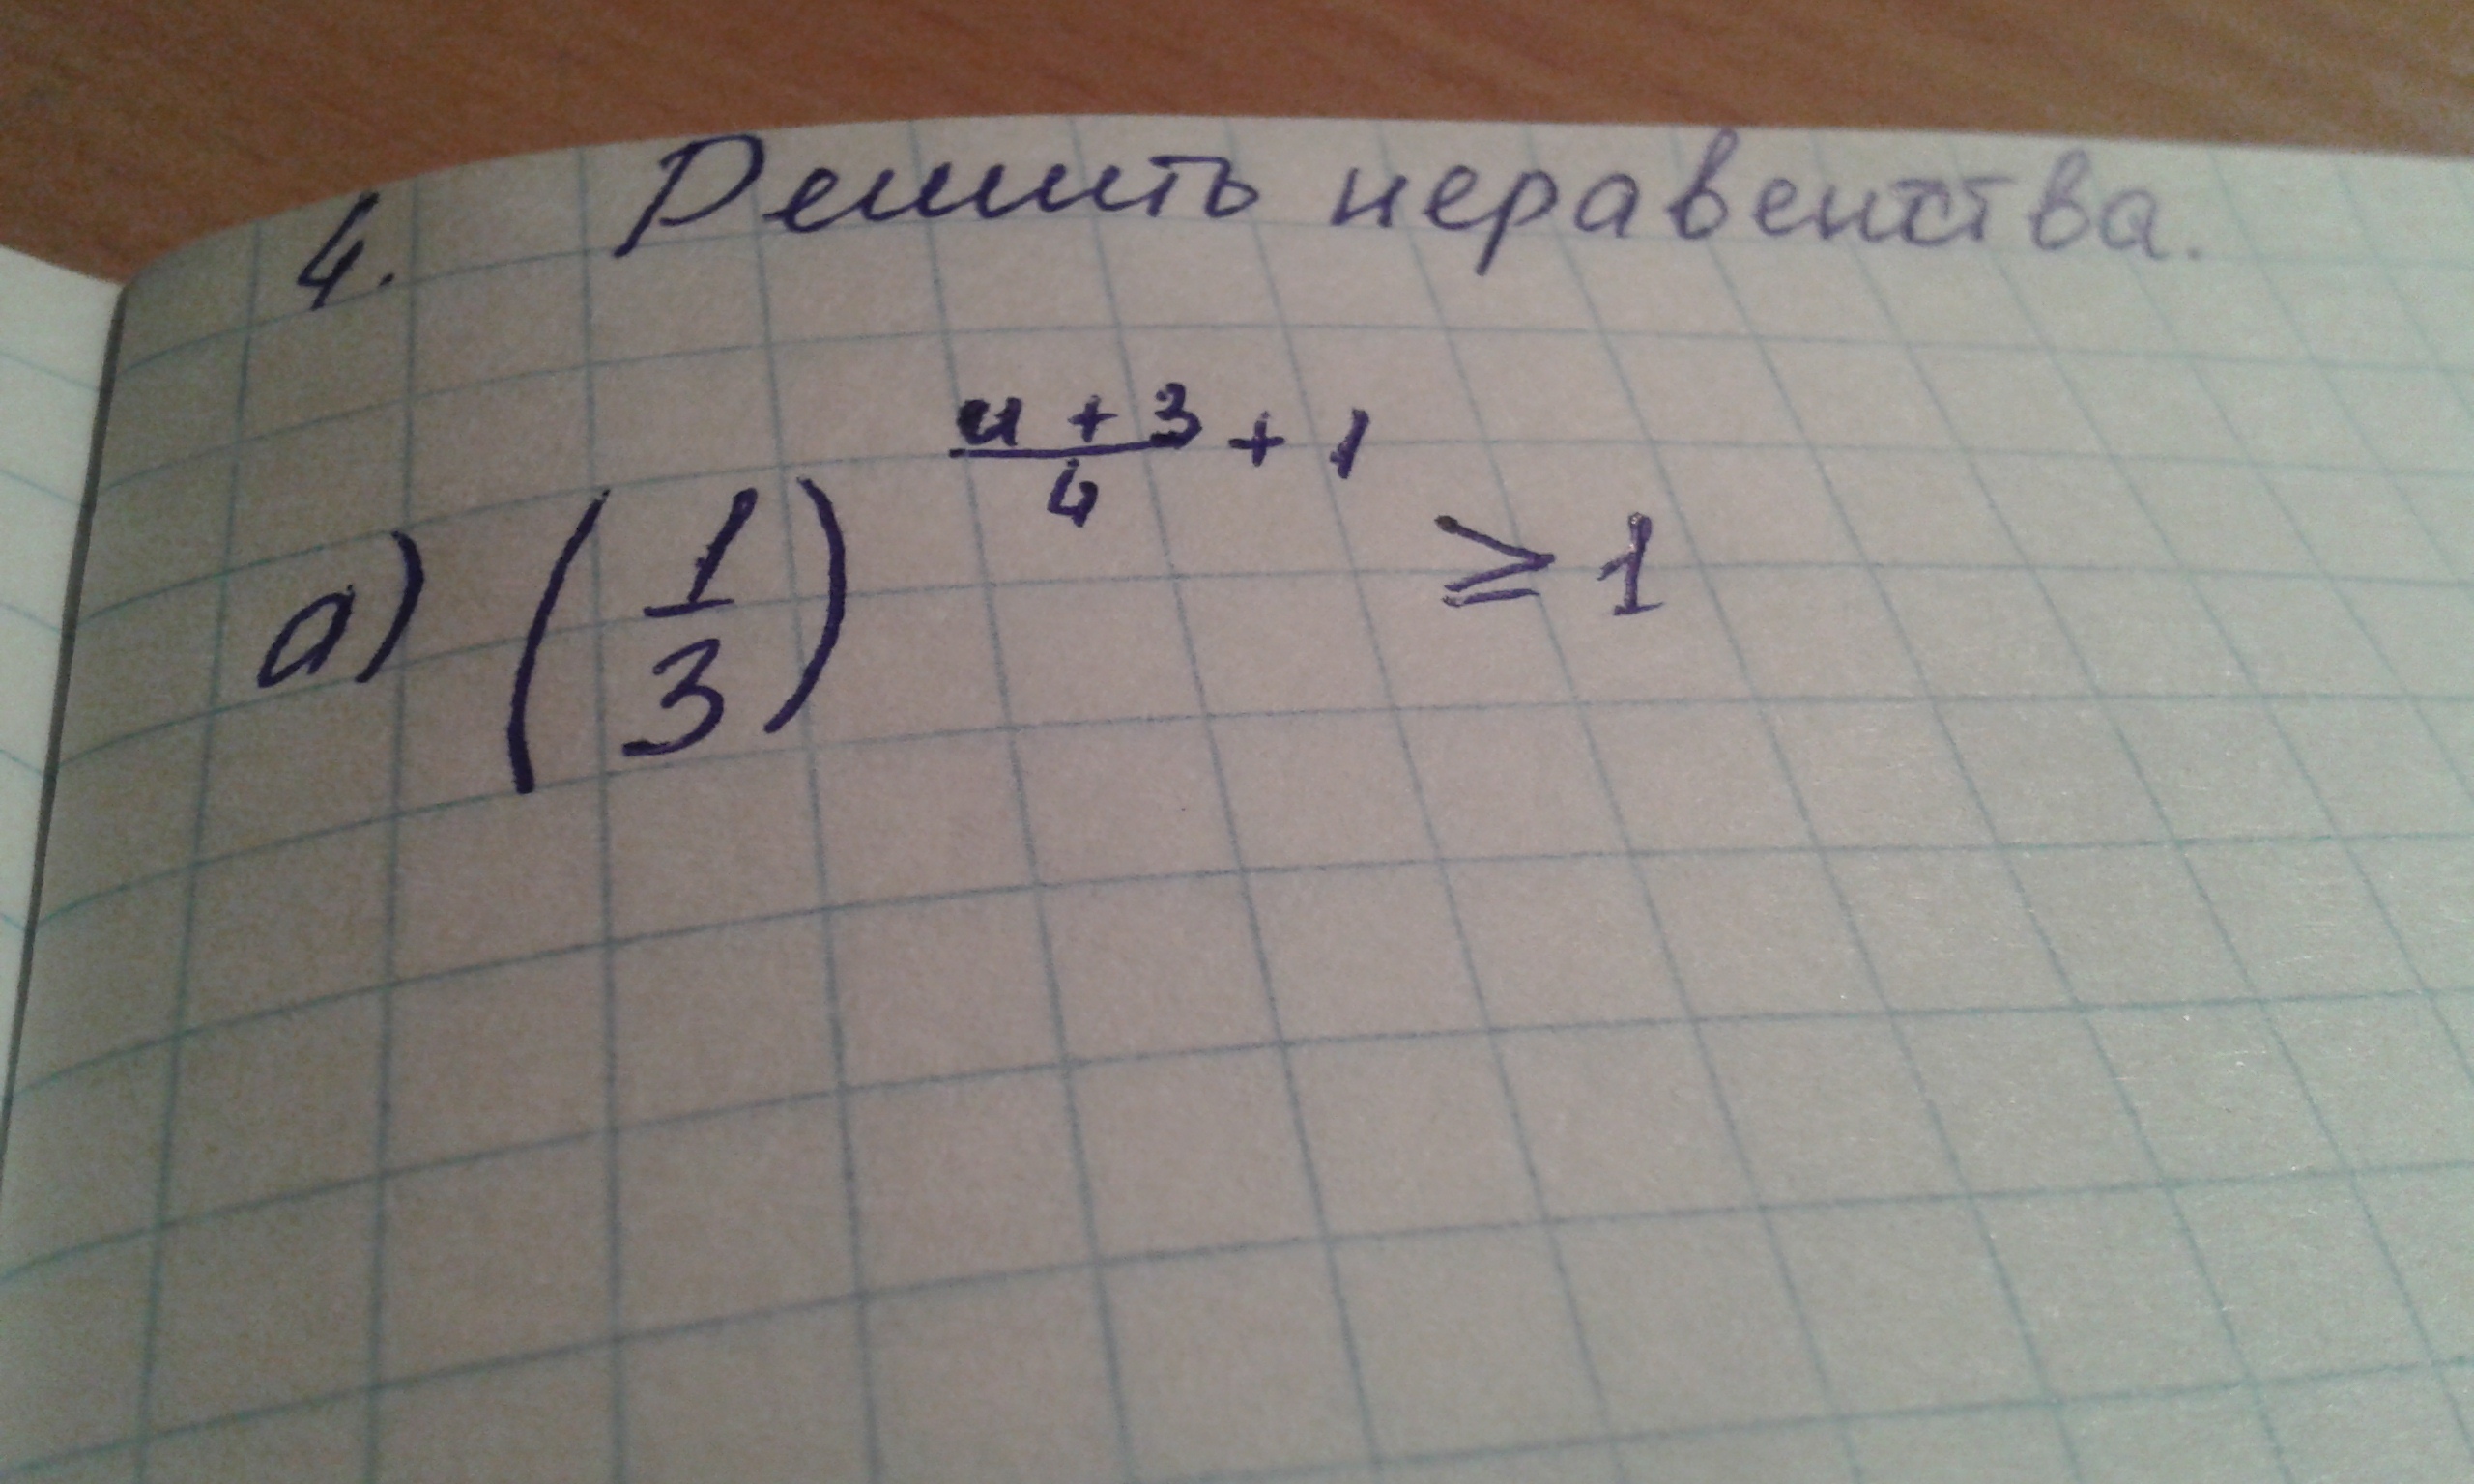 4. Решить неравенства.
а) (1/3)^((и + 3)/4 + 1) ≥ 1